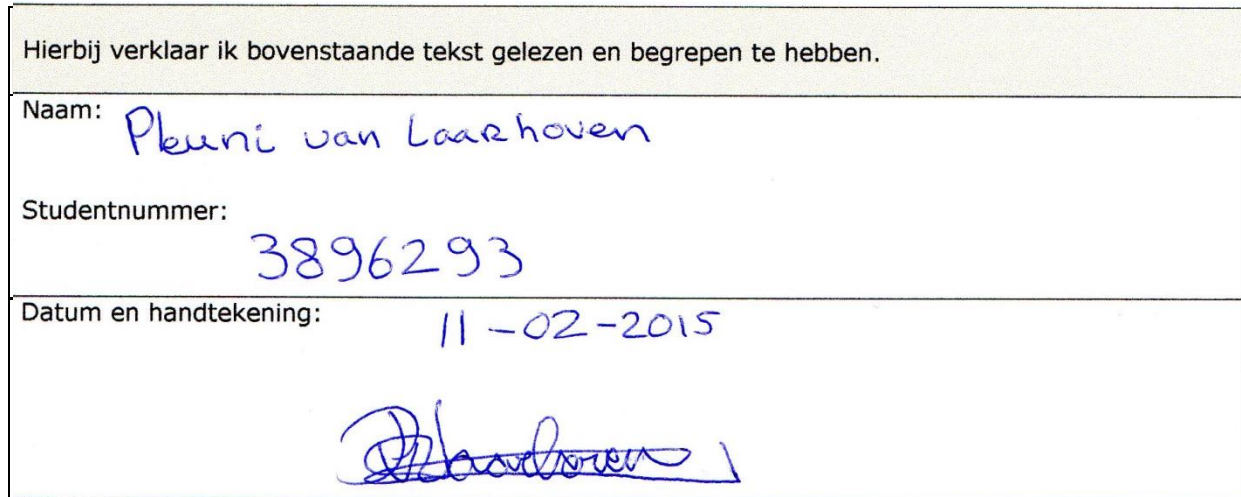 Hierbij verklaar ik bovenstaande tekst gelezen en begrepen te hebben.
Naam: Pleuni van Laarhoven
Studentnummer:
3896293
Datum en handtekening: 11-02-2015